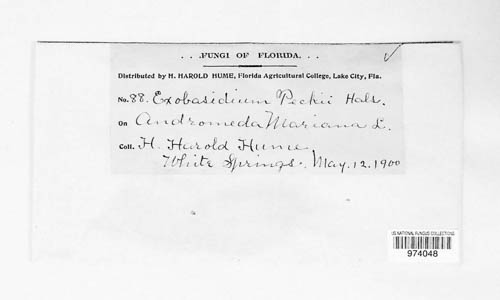 . . .FUNGI OF FLORIDA. . .
Distributed by H. HAROLD HUME, Florida Agricultural College, Lake City, Fla.
No. 88. Exobasidium Peckii Hals.
On Andromeda Mariana L.
Coll. H. Harold Hume,
White Springs., May. 12. 1900
US NATIONAL FUNGUS COLLECTIONS
974048